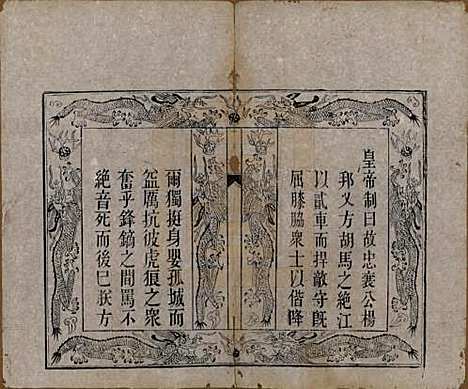 皇帝制曰故忠襄公楊
邦乂方胡馬之絶江
以貳車而捍敵守旣
屈膝脇衆士以偕降
爾獨挺身嬰孤城而
益厲抗彼虎狼之衆
奮乎鋒鏑之間罵不
絶音死而後巳朕方